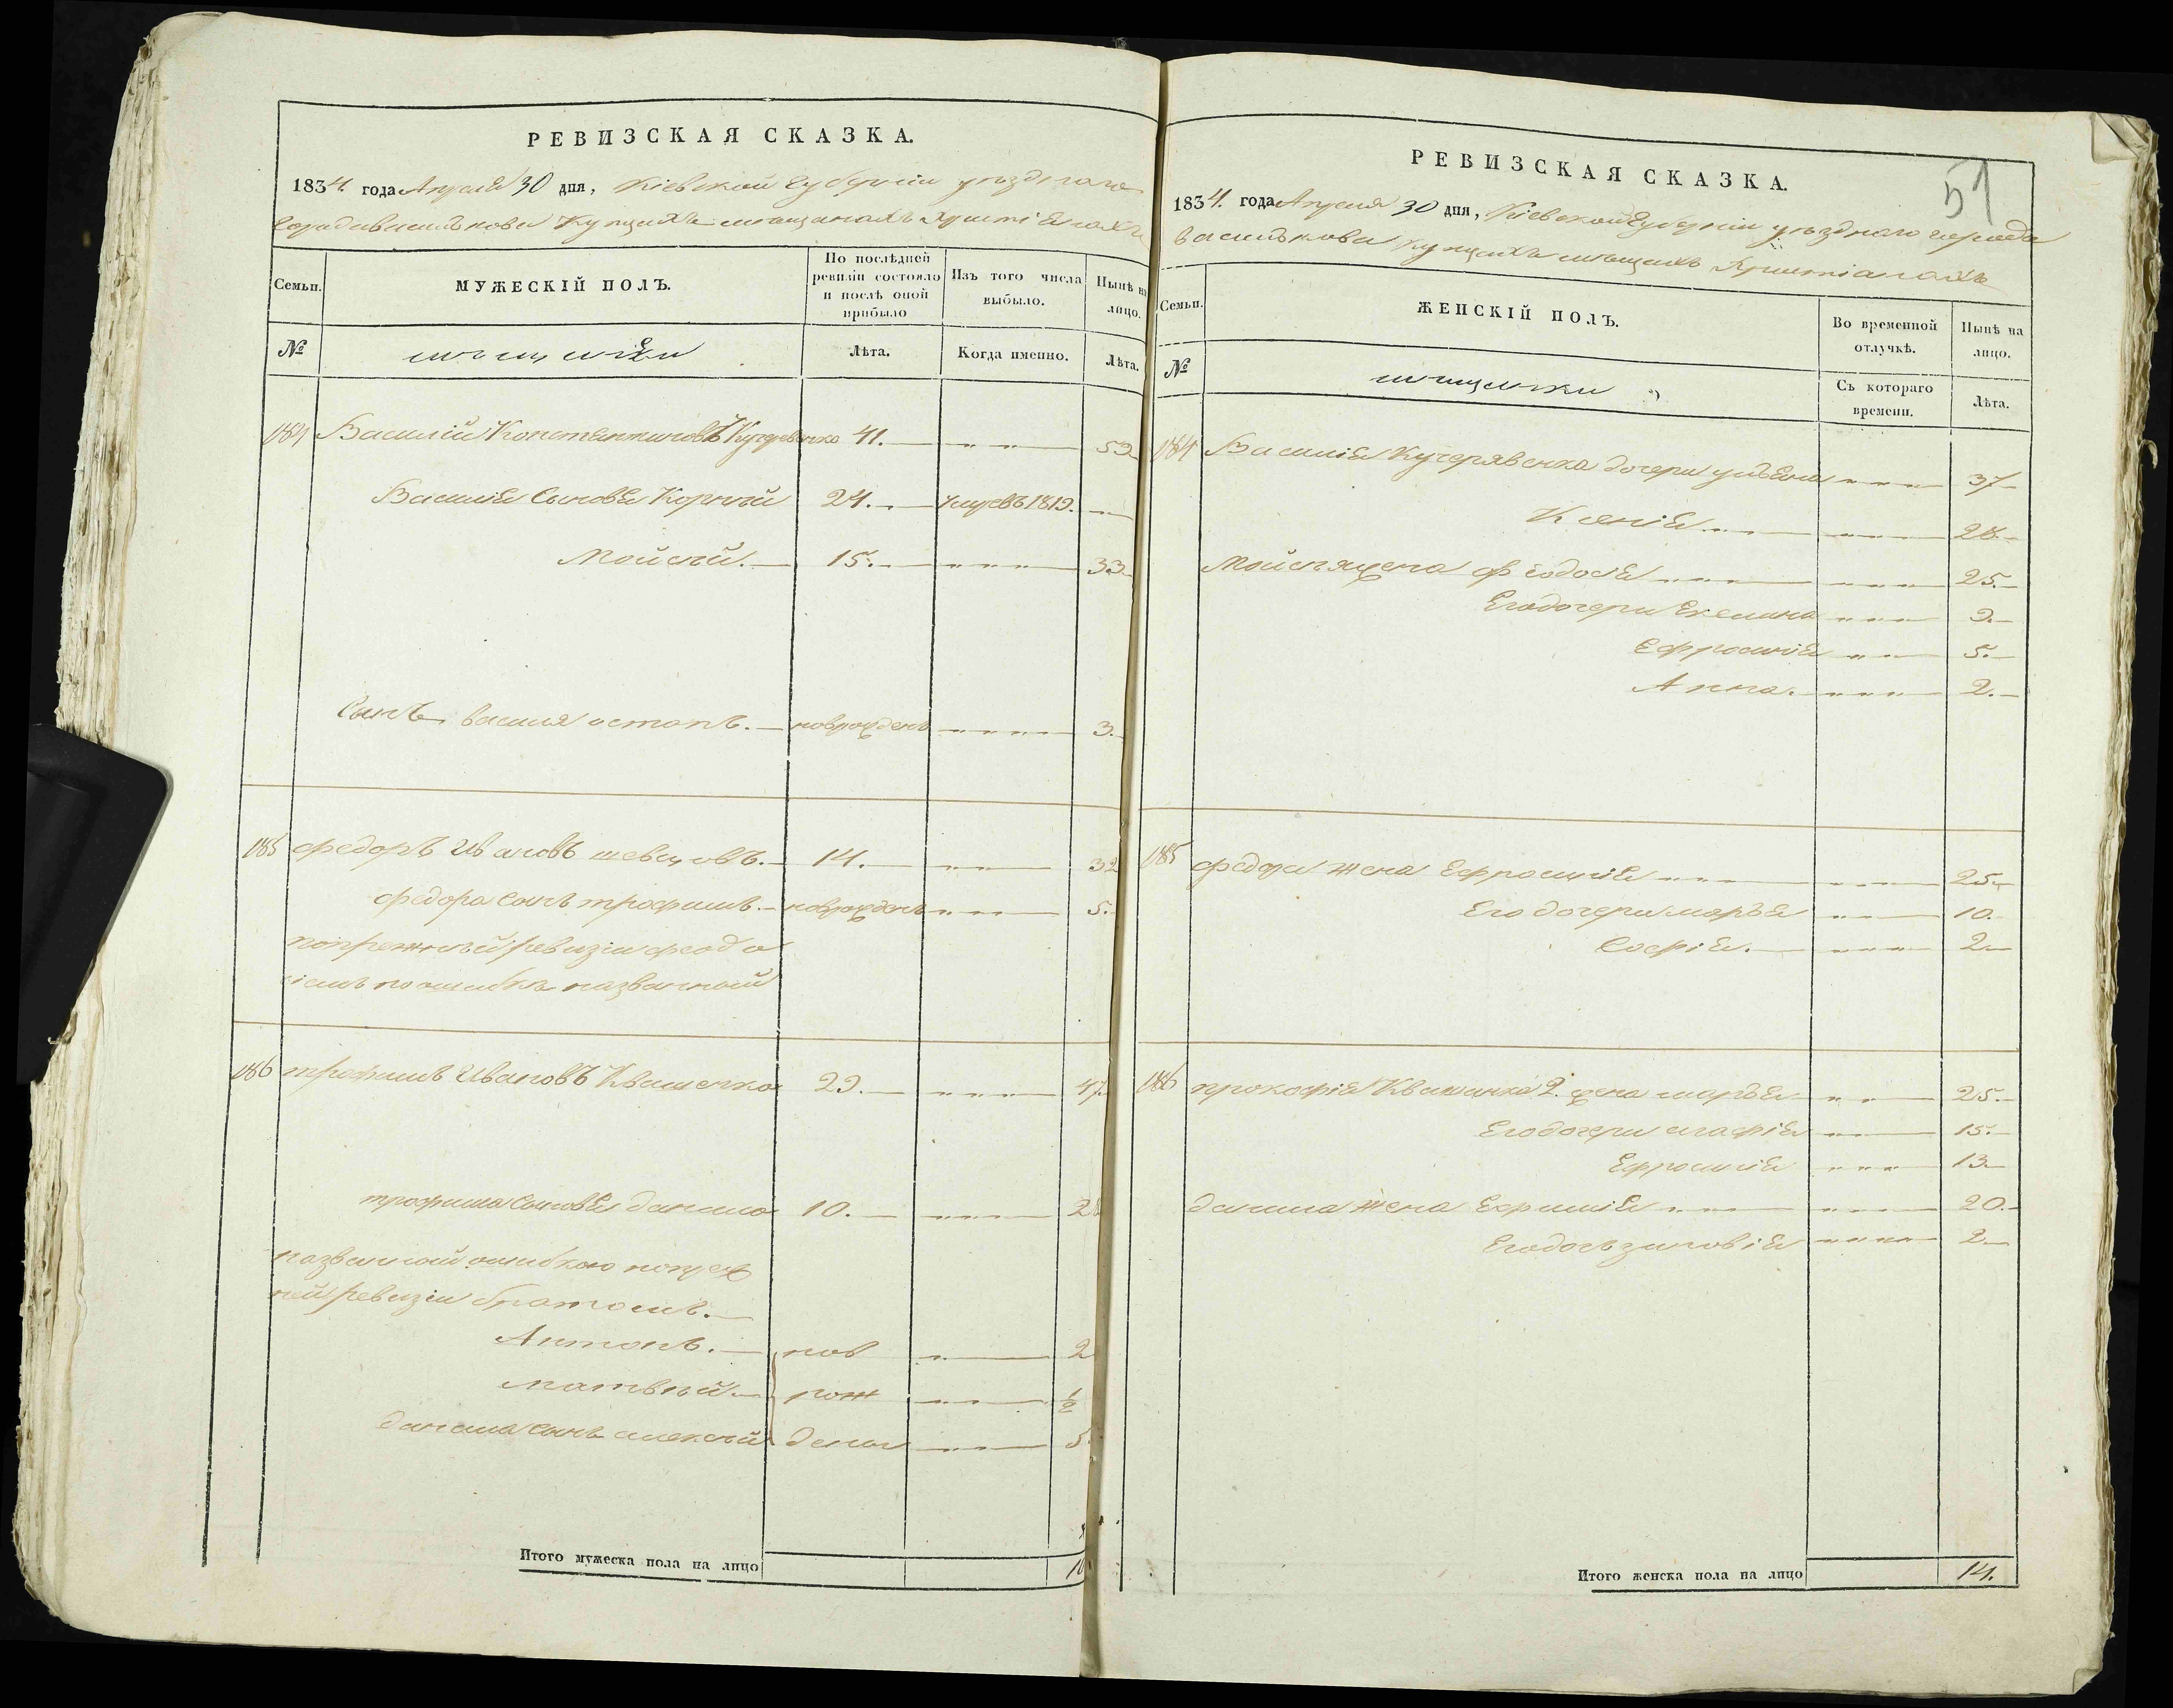 РЕВИЗСКАЯ СКАЗКА.
1834. года Апреля 30 дня, Кіевской Губерніи уезднаго
Города Василькова Купцахъ мещанахъ Христіянахъ
Семьи.
МУЖЕСКІЙ ПОЛЪ.
По послѣдней ревизіи состояло и послѣ оной прибыло
Изъ того числа выбыло.
Нынѣ на лицо.
№
Лѣта.
Когда именно.
Лѣта.
184 Василій Константиновъ Кучеревенко 41. 59
Василия Сыновья Корнѣй 24. умревъ 1819.
Мойсѣй. 15. 33
Сынъ Василя остапъ. новрожденъ 3.
185 федоръ Ивановъ шевцовъ. 14. 32
федора Сынъ трофимъ. новрожденъ 5.
попрежнѣй ревизіи феодо
сіемъ по ошибке названной
186 трофимъ Ивановъ Квашенко 29. 47
трофима Сыновья данило 10. 28
названной ошибкою попреж
ней ревизіи братомъ.
Антонъ. нов 2
матвѣй. рож 1/2
данила Сынъ алексѣй дены 5
Итого мужеска пола на лицо 10
51
РЕВИЗСКАЯ СКАЗКА.
1834. года Апреля 30 дня, Кіевской Губерніи уезднаго города
Василькова купцахъ мещанахъ Христіанахъ
Семьи.
ЖЕНСКІЙ ПОЛЪ.
Во временной отлучкѣ.
Нынѣ на лицо.
№
мещанки
Съ котораго времени.
Лѣта.
184 Василія Кучерявенка дочери ульяна 37
Ксенія 28
Мойсѣя жена феодосія 25.
Его дочери Екелина 9.
Ефросинія 5.
Анна. 2.
185 федора жена Ефросинія 25
Его дочери марья 10.
Софія. 2
186 прокофія Квашенка 2. жена марья 25.
Его дочери агафія 15.
Ефросинія 13
данила жена Ефимія 20.
Его дочь зиновія 2
Итого женска пола на лицо 14.